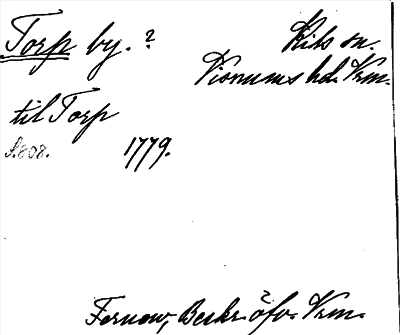 Torp by. ?
Kils sn.
Visnums hd. Vrm.
til Torp
S. 808. 1779.
Fernow, Beskr. öfv. Vrm.